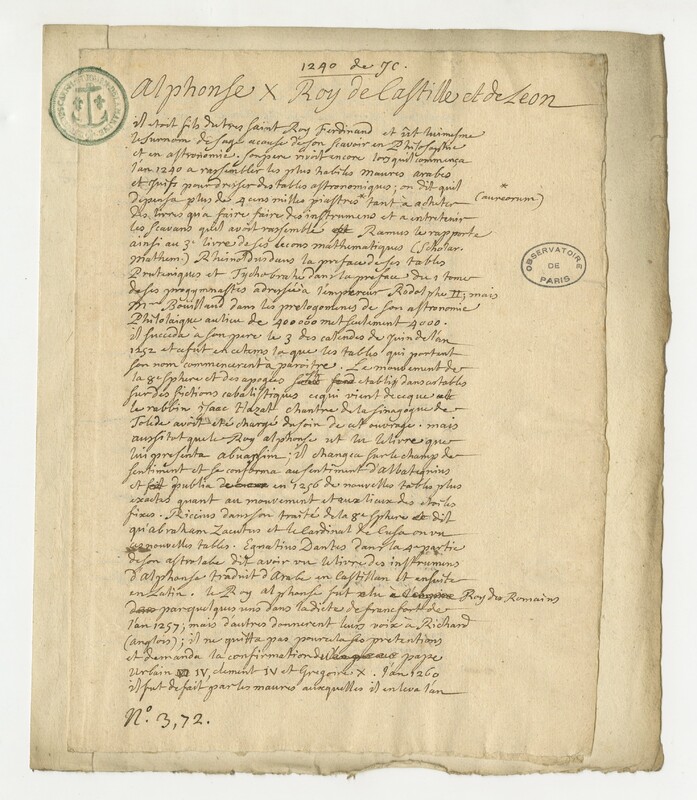 1240 de JC.
Alphonse X Roy de Castille et de Leon
il etoit fils du tres saint Roy Ferdinand et eût luimesme
le surnom de sage acause de son scavoir en Philosophie
et en astronomie. son pere vivoit encore lorsquil commença
l'an 1240 a rassembler les plus habiles maures arabes
et Juifs pour dresser des tables astronomiques; on dit quil
depensa plus des 4 cens milles piastres* tant a acheter
* (aureorum)
des livres qu'a faire faire des instrumens et a entretenir
les scavans quil avoit rassemblé Ramus le rapporte
ainsi au 3e livre de ses lecons mathematiques (Scholar.
mathem.) Rheinoldus dans la preface de ses tables
Pruteniques et Tychobrahé dans la preface du 1 tome
de ses progymnastes adressée à l'empereur Rodolphe II; mais
Mr Bouillaud dans les prolegomenes de son astronomie
Philolaique au lieu de 400000 met seulement 4000.
il succeda a son pere le 3 des calendes de Juin de l'an
1252 et ce fut en ce tems la que les tables qui portent
son nom commencerent à paroitre. Le mouvement de
la 8e sphere et des apogées etabli dans ces tables
sur des fictions cabalistiques ce qui vient de ce que
le rabbin isaac Hazat chantre de la sinagogue de
Tolede avoit eté chargé du soin de cet ouvrage. mais
aussitot que le Roy alphonse ut lu le livre que
lui presenta abuassim; il changea sur le champ de
sentiment et se conforma au sentiment d'Albategnius
et publia en 1256 de nouvelles tables plus
exactes quant au mouvement et aux lieux des etoiles
fixes. Riccius dans son traité de la 8e sphere dit
qu'abraham Zacutus et le Cardinal de Cusa on vu
nouvelles tables. Egnatius Dantes dans la 4e partie
de son astrolabe dit avoir vu le livre des instrumens
d'Alphonse traduit d'Arabe en Castillan et ensuite
en Latin. le Roy alphonse fut elu Roy des Romains
par quelques uns dans la diete de francfort de
l'an 1257; mais d'autres donnerent leur voix à Richard
(anglois); il ne quitta pas pour cela ses pretentions
et demanda la confirmation pape
Urbain IV, clement IV et Gregoire X. l'an 1260
il fut defait par les maures auxquelles il enleva l'an
N.o 3,72.
OBSERVATOIRE
DE
PARIS